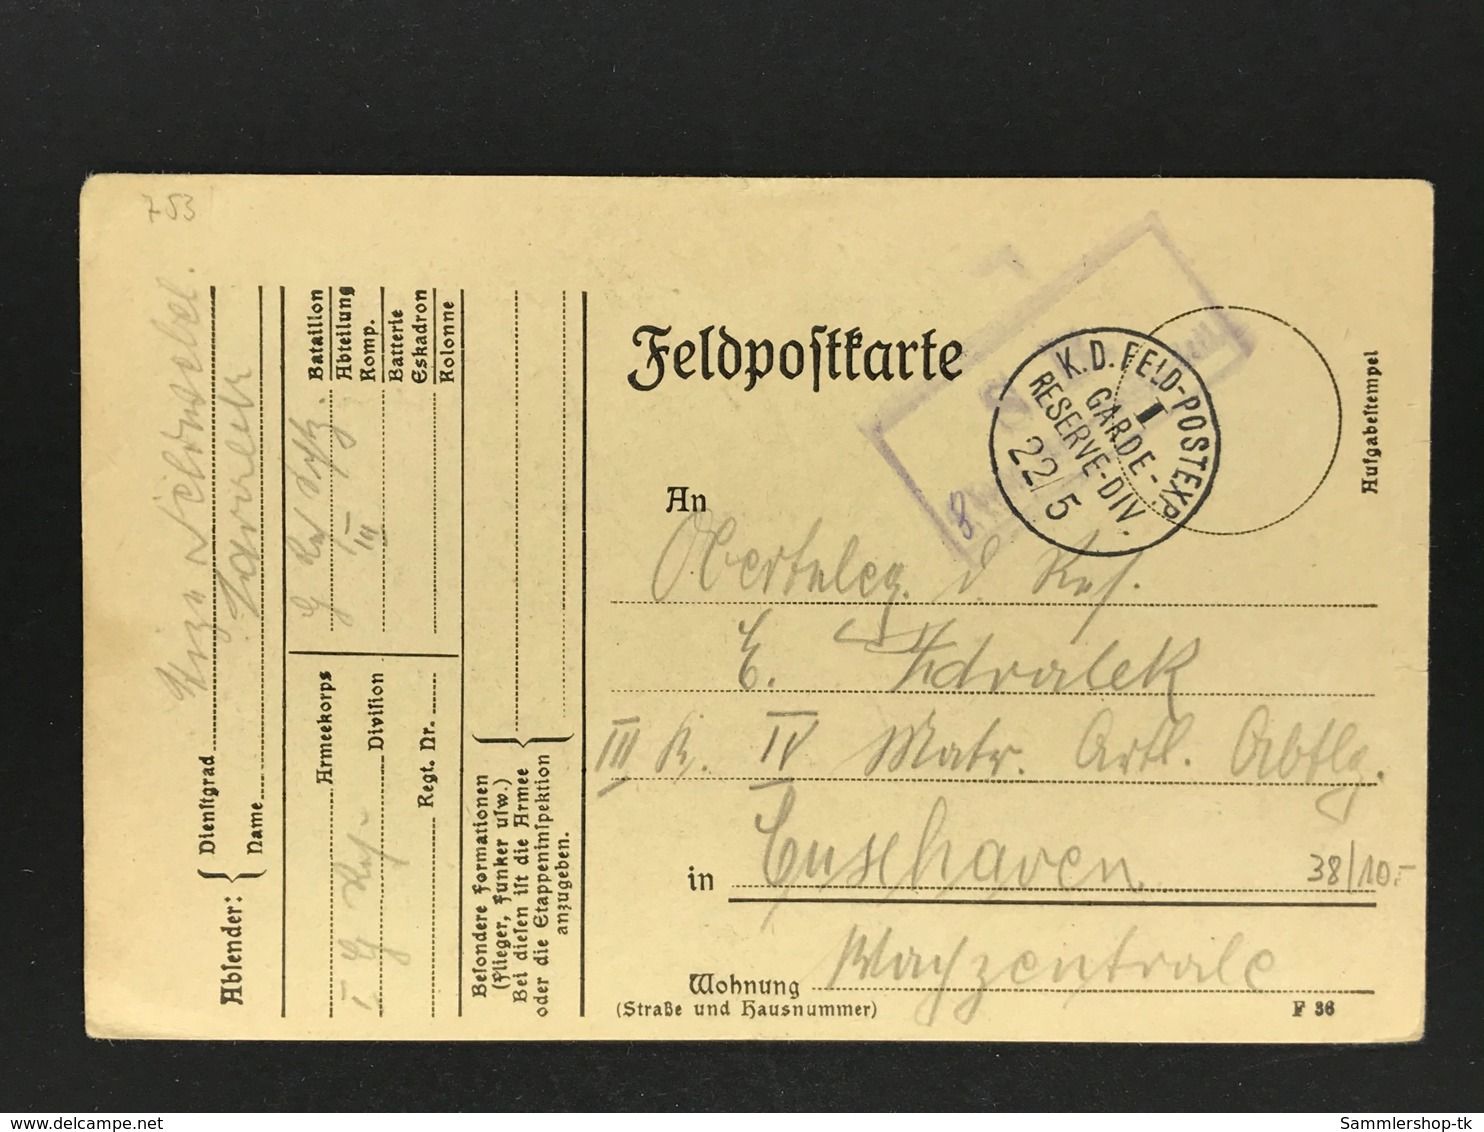 753
Feldpostkarte
K. D. FELD-POSTEXP.
I
GARDE-
RESERVE-DIV.
22/5
Aufgabestempel
8
An
Oberteleg. d. Res.
E.
III K. IV Matr. Artl. Abtlg.
in Cuxhaven
38/10.-
Wohnung
(Straße und Hausnummer)
F 36
Absender:
Dienstgrad
Name
Bataillon
Abteilung
Komp.
Batterie
Eskadron
Kolonne
III
Armeekorps
Division
Regt. Nr.
I. G Res.
Besondere Formationen
(Flieger, Funker usw.)
Bei diesen ist die Armee
oder die Etappeninspektion
anzugeben.
delcampe.net
Sammlershop-tk